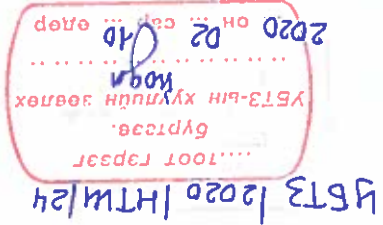 УБТЗ/2020/НТШ/24
....тоот гэрээг
бүртгэв.
УБТЗ-ын хуулийн зөвлөх
.........................
2020 он 02 сар 10 өдөр